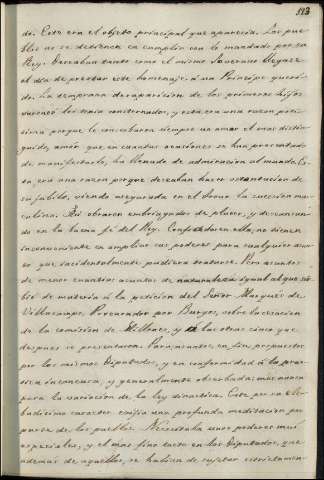 113
do. Este era el objeto principal que aparecia. Los pue-
blos no se detienen en cumplir con lo mandado por su
Rey. Deseaban tanto como el mismo Soverano llegase
el dia de prestar este homenaje á un Principe queri-
do. La temprana desaparicion de los primeros hijos
varones los tenia consternados, y esta era una razon pode-
sisima porque le consebaran siempre un amor el mas distin-
guido, amor que en cuantas ocasiones se han presentado
de manifestarlo, ha llenado de admiracion al mundo. Es-
ta era una razon porque deseaban hacer ostentacion de
su jubilo, viendo asegurada en el Trono la succesion mas-
culina. Asi obraron embriagados de placer, y descansan-
do en la buena fe del Rey. Confiados en ella, no tienen
inconveniente en ampliar sus poderes para cualquier asun-
to que incidentalmente pudiera tratarse. Pero asuntos
de menor cuantia: asuntos de naturaleza igual al que sir-
bió de materia á la peticion del Señor Marques de
Villacampo, Procurador por Burgos, sobre la creacion
de la comision de Millones, y á las otras cinco que
despues se presentaron. Para asuntos, en fin, propuestos
por los mismos Diputados, y en conformidad á la prac-
tica inconcusa, y generalmente observada: mas nunca
para la variacion de la ley dinastica. Este por su ele-
badisimo caracter exijia una profunda meditacion por
parte de los pueblos. Necesitaba unos poderes muí
especiales, y el mas fino tacto en los Diputados, que
ademas de aquellos, se habian de sujetar estrictamen-